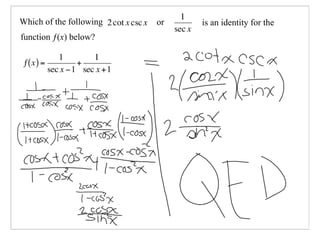 Which of the following 2 cot x csc x or 1/sec x is an identity for the
function f(x) below?
f(x) = 1/(sec x − 1) + 1/(sec x + 1)
= 2 cot x csc x
1/(1/cosx − cosx/cosx) + 1/(1/cosx + cosx/cosx)
2 (cosx/sinx)(1/sinx)
((1+cosx)/(1+cosx)) cosx/(1−cosx) + cosx/(1+cosx) ((1−cosx)/(1−cosx))
2 cosx/sin²x
(cosx + cos²x)/(1−cos²x) + (cosx − cos²x)/(1−cos²x)
QED
2cosx/(1−cos²x)
2cosx/sin²x